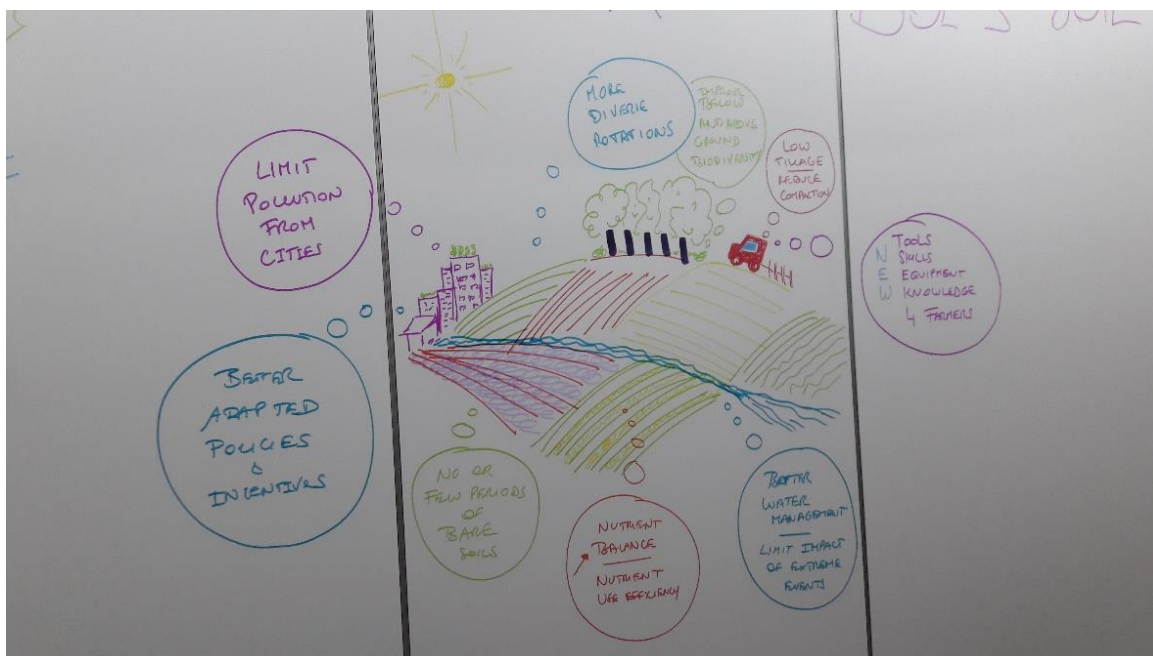 MORE
DIVERIE
ROTATIONS
IMPROV
BELOW
AND ABOVE
GROUND
BIODIVERSITY
LOW
TILLAGE
REDUCE
COMPACTION
LIMIT
POLLUTION
FROM
CITIES
TOOLS
N SKILLS
E EQUIPMENT
W KNOWLEDGE
4 FARMERS
BETTER
ADAPTED
POLICIES
&
INCENTIVES
NO OR
FEW PERIODS
OF
BARE
SOILS
NUTRIENT
BALANCE
NUTRIENT
USE EFFICIENCY
BETTER
WATER
MANAGEMENT
LIMIT IMPACT
OF EXTREME
EVENTS